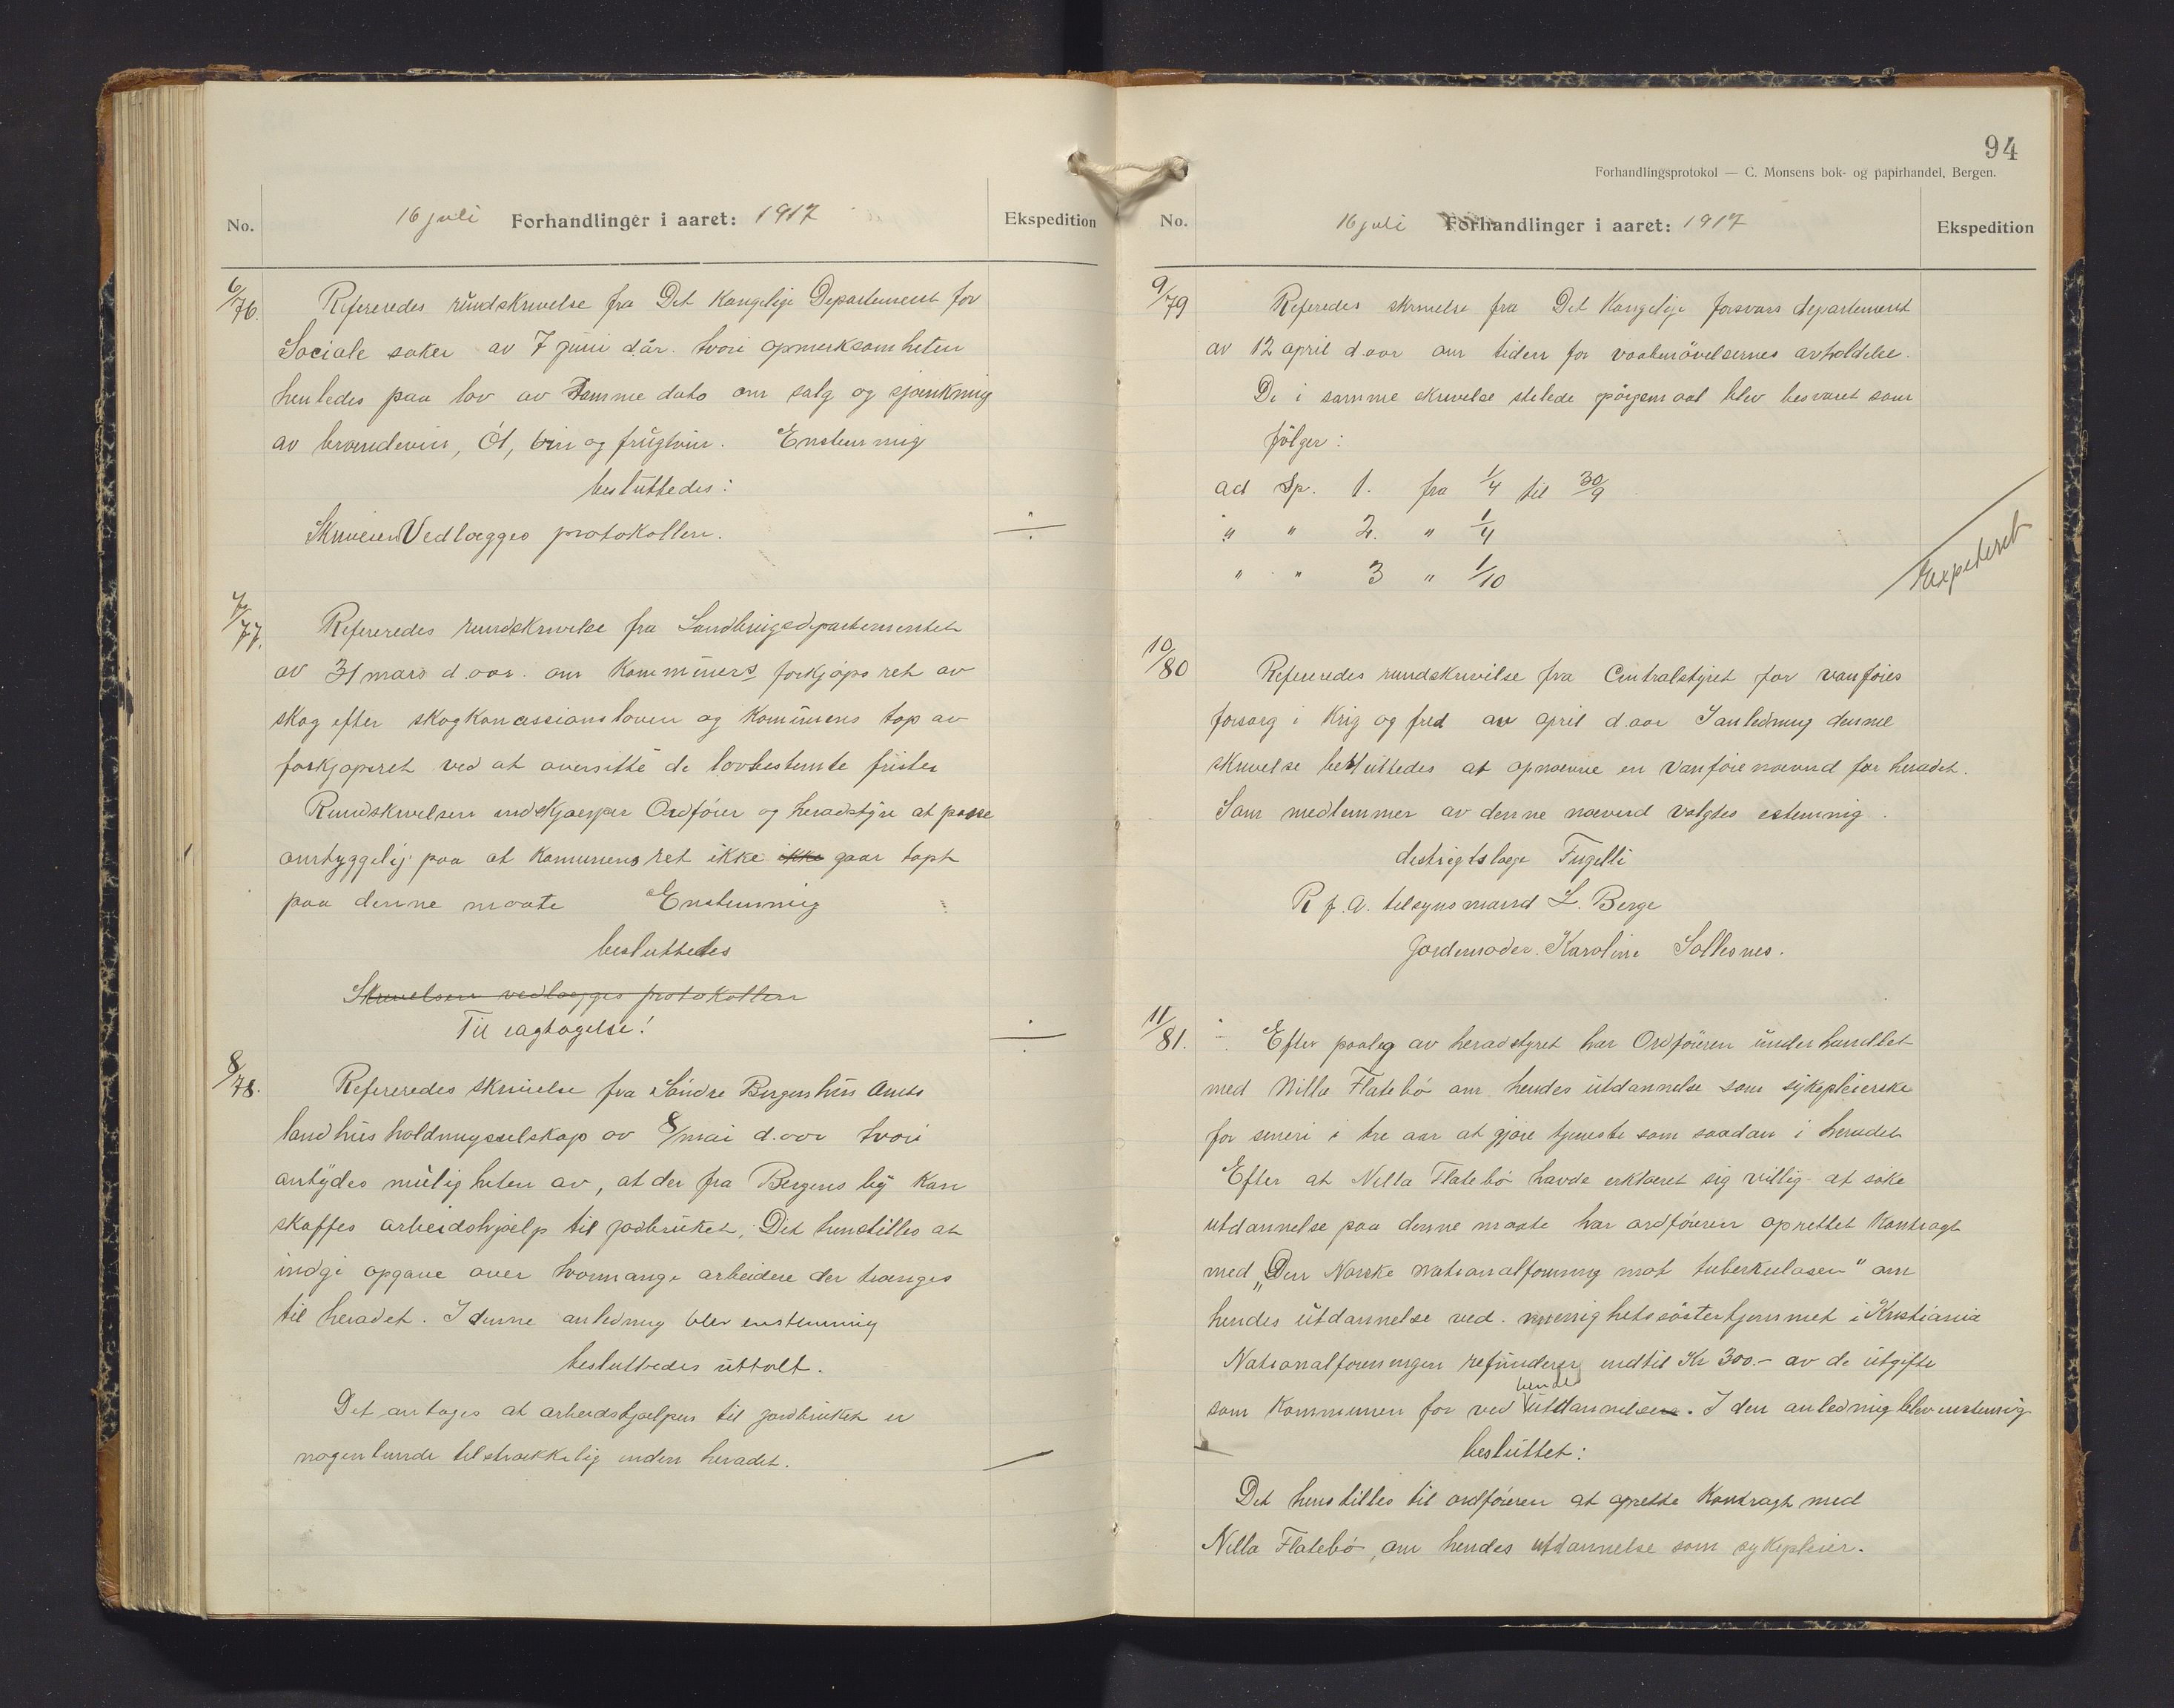 No.
16 juli Forhandlinger i aaret: 1917
Ekspedition
6/76.
Refereredes rundskrivelse fra Det Kongelige Departement for
Sociale saker av 7 juni d år. hvori opmerksomheten
henledes paa lov av samme dato om salg og sjenkning
av brændevin, Øl, vin og frugtvin. Enstemmig
besluttedes:
Skrivelsen Vedlægges protokollen.
7/77.
Refereredes rundskrivelse fra Landbrugsdepartementet
av 31 mars d. aar. om Kommuners forkjøps ret av
skog efter skogkoncessionsloven og Kommunens tap av
forkjøpsret ved at oversitte de lovbestemte frister
Rundskrivelsen indskjærper Ordfører og heradstyre at passe
omhyggelig paa at Kommunens ret ikke ikke gaar tapt
paa denne maate Enstemmig
besluttedes
Skrivelsen vedlægges protokollen
Til iagtagelse!
8/78.
Refereredes skrivelse fra Søndre Bergenhus Amts
landhusholdningsselskap av 8/mai d. aar hvori
antydes muligheten av, at der fra Bergens by Kan
skaffes arbeidshjælp til jordbruket. Det henstilles at
indgi opgave over hvormange arbeidere der trænges
til heradet. I denne anledning blev enstemmig
besluttedes uttalt.
Det antages at arbeidshjælpen til jordbruket er
nogenlunde tilstrækkelig inden heradet.
94
Forhandlingsprotokol — C. Monsens bok- og papirhandel, Bergen.
No.
16 juli Forhandlinger i aaret: 1917
Ekspedition
9/79
Referedes skrivelse fra Det Kongelige forsvars departement
av 12 april d. aar om tiden for vaabenøvelsernes avholdelse.
De i samme skrivelse stilede spørgsmaal blev besvaret som
følger:
ad Sp. 1. fra 1/4 til 30/9
" " 2. " 1/4
" " 3 " 1/10
Expederet
10/80
Refereredes rundskrivelse fra Centralstyret for vanføres
forsorg i Krig og fred av april d. aar I anledning denne
skrivelse besluttedes at opnævne en Vanførenævnd for heradet.
Som medlemmer av denne nævnd valgtes estemmig
distrigtslæge Fugelli
R f. A. tilsynsmand L. Berge
Jordemoder Karoline Sollesnes.
11/81.
Efter paaleg av heradstyret har Ordføreren underhandlet
med Nilla Flatebø om hendes utdannelse som sykepleierske
for senere i tre aar at gjøre tjeneste som saadan i heradet
Efter at Nilla Flatebø havde erklæret sig villig at søke
utdannelse paa denne maate har ordføreren oprettet Kontragt
med „Den Norske nationalforening mot tuberkulosen" om
hendes utdannelse ved menighetssøsterhjemmet i Kristiania
Nationalforeningen refunderer indtil Kr 300.- av de utgifte
hendes
som Kommunen for ved utdannelsen. I den anledning blev enstemmig
besluttet:
Det henstilles til ordføreren at oprette Kontragt med
Nilla Flatebø, om hendes utdannelse som sykepleier.